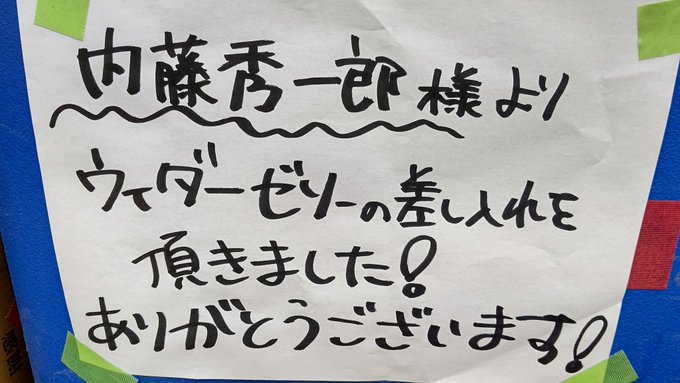 内藤秀一郎様より
ウイダーゼリーの差し入れを
頂きました!
ありがとうございます!